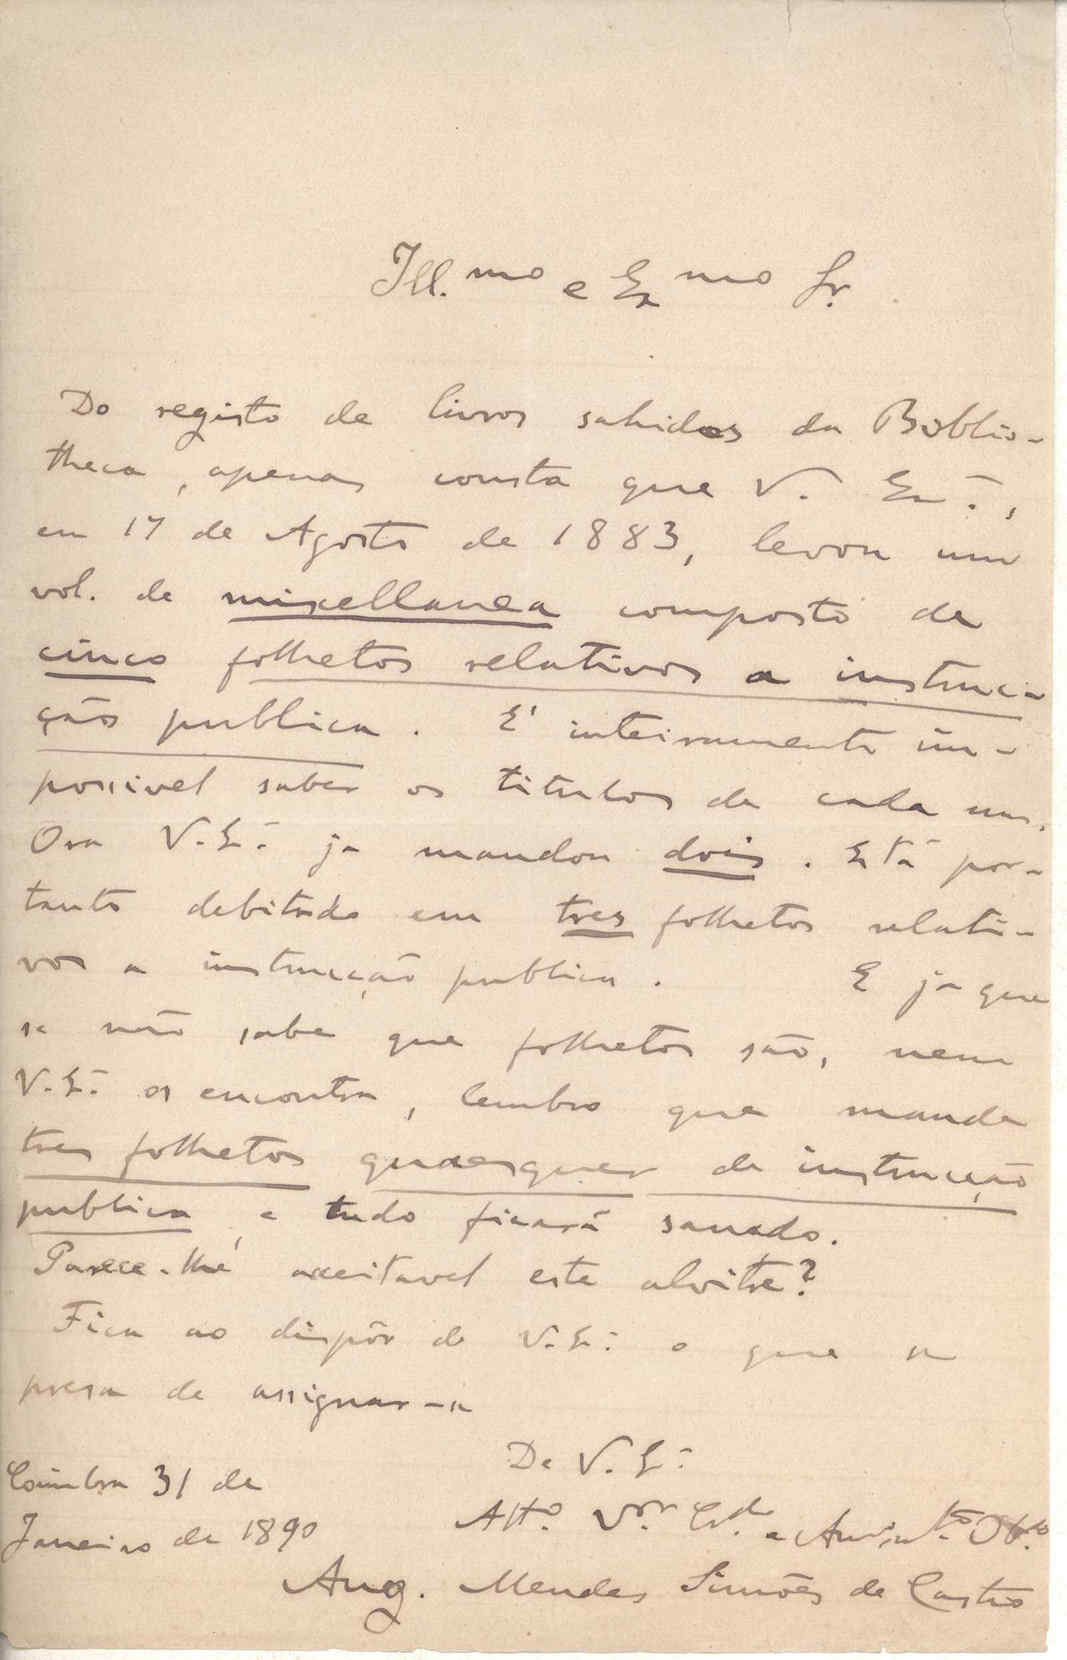 Ill.mo e Exmo Sr.
Do registo de livros sahidos da Biblio-
theca, apenas consta que V. Ex.ª,
em 17 de Agosto de 1883, levou um
vol. de miscellanea composto de
cinco folhetos relativos a instruc-
ção publica. E' inteiramente im-
possivel saber os titulos de cada um.
Ora V. E.ª ja mandou dois. Está por-
tanto debitado em tres folhetos relati-
vos a instrucção publica. E ja que
se não sabe que folhetos são, nem
V. E.ª os encontra, lembro que mande
tres folhetos quaesquer de instrucção
publica e tudo ficará sanado.
Parece-lhe acceitavel este alvitre?
Fica ao dispôr de V. E.ª o que se
presa de assignar-se
De V. E.ª
Coimbra 31 de
Janeiro de 1890
Att.º V.or Cr.do e Am.º Ob.do
Aug. Mendes Simões de Castro